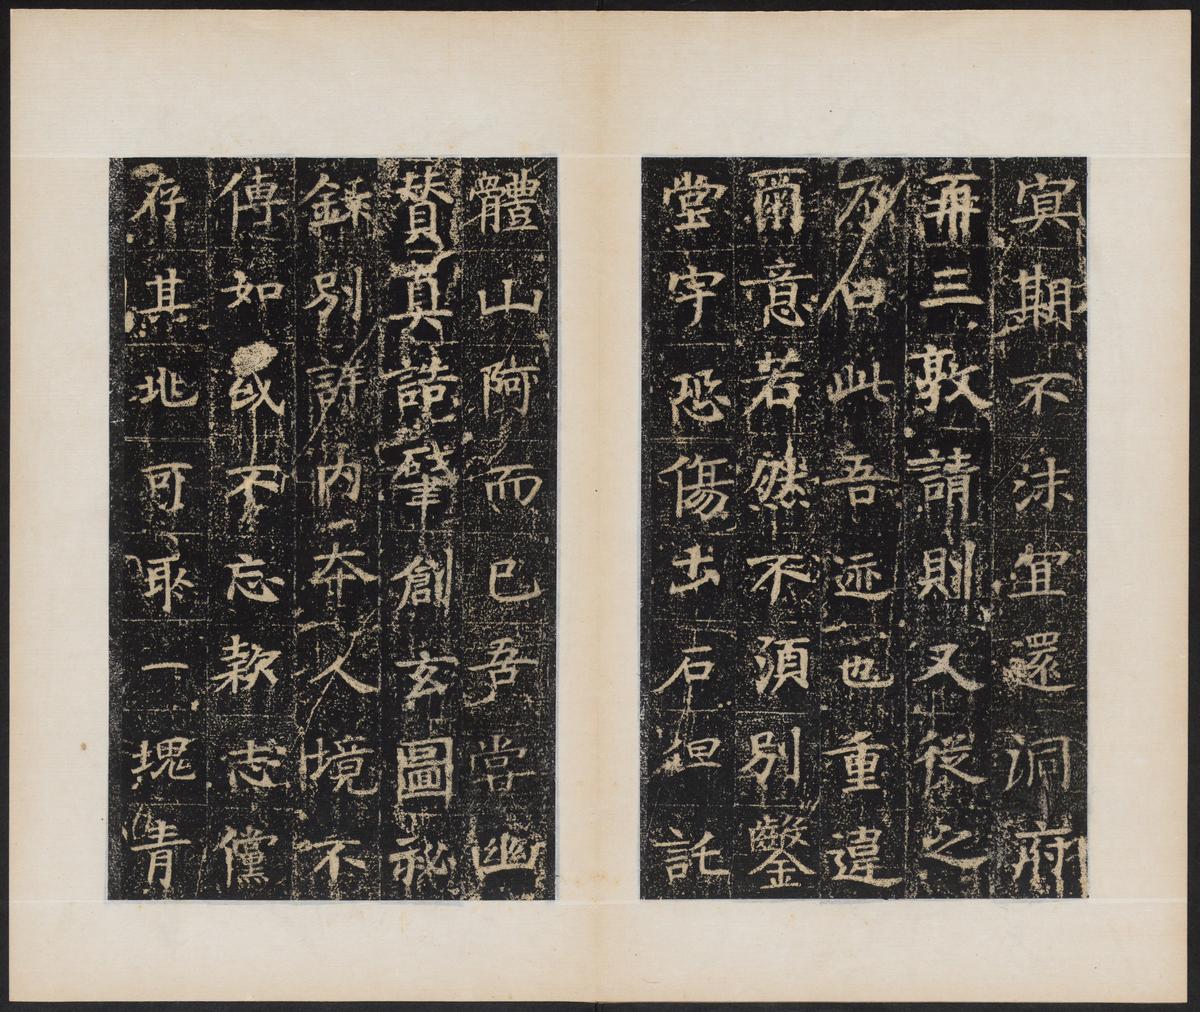 冥期不沬宜還洞府
再三敦請則又從之
乃曰此吾迹也重違
爾意若然不須別鑿
堂宇恐傷土石但託
體山阿而已吾當幽
贊真誥肇創玄圖祕
錄別詳內夲人境不
傳如或不忘款志儻
存其兆可取一塊青